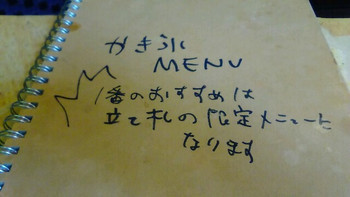 かきうに
MENU
1番のおすすめは
立て札の限定メニューと
なります